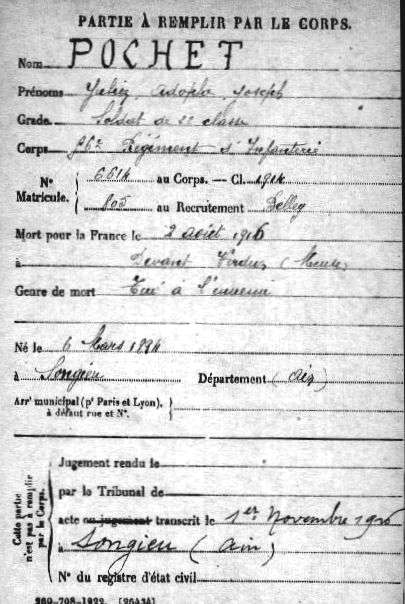 PARTIE À REMPLIR PAR LE CORPS.
Nom POCHET
Prénoms Adolphe Joseph
Grade Soldat de 2e classe
Corps Régiment d'Infanterie
Nº Matricule. 6614 au Corps. — Cl. 1914
805 au Recrutement Belley
Mort pour la France le 2 août 1916
à Devant Verdun (Meuse)
Genre de mort Tué à l'ennemi
Né le 6 Mars 1894
à Songieu Département (Ain)
Arrt municipal (pr Paris et Lyon),
à défaut rue et Nº.
Cette partie
n'est pas à remplir
par le Corps.
Jugement rendu le
par le Tribunal de
acte ou jugement transcrit le 1er Novembre 1916
à Songieu (Ain)
Nº du registre d'état civil